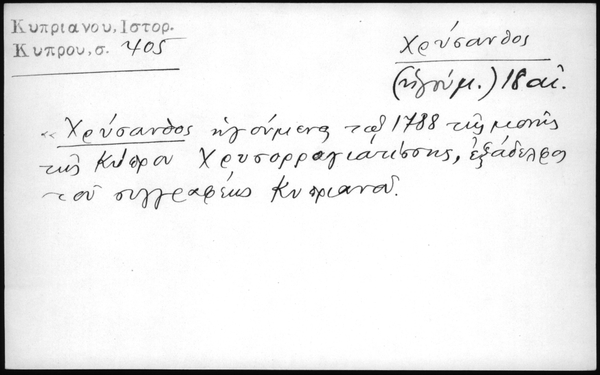 Κυπριανου, Ιστορ.
Κυπρου, σ. 405
Χρύσανθος
(ἡγούμ.) 18 αἰ.
«Χρύσανθος ἡγούμενος τῷ 1788 τῆς μονῆς
τῆς Κύπρου Χρυσορρογιατίσσης, ἐξάδελφος
τοῦ συγγραφέως Κυπριανοῦ.